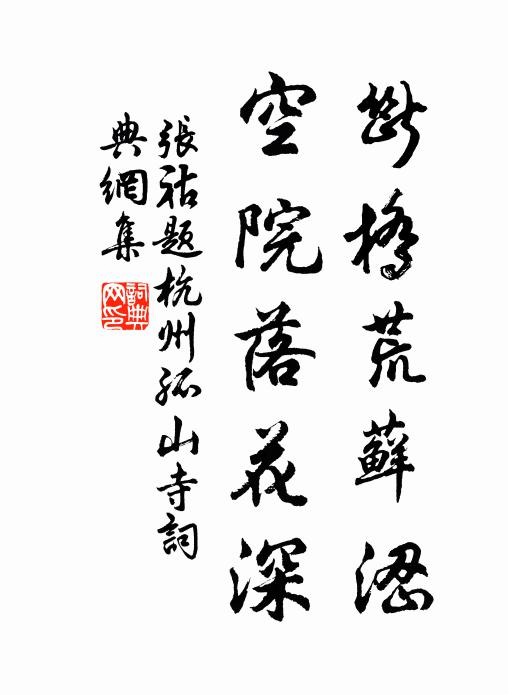 斷橋荒蘚澀
空院落花深
張祜題杭州孤山寺詞
典網集
詞典網印